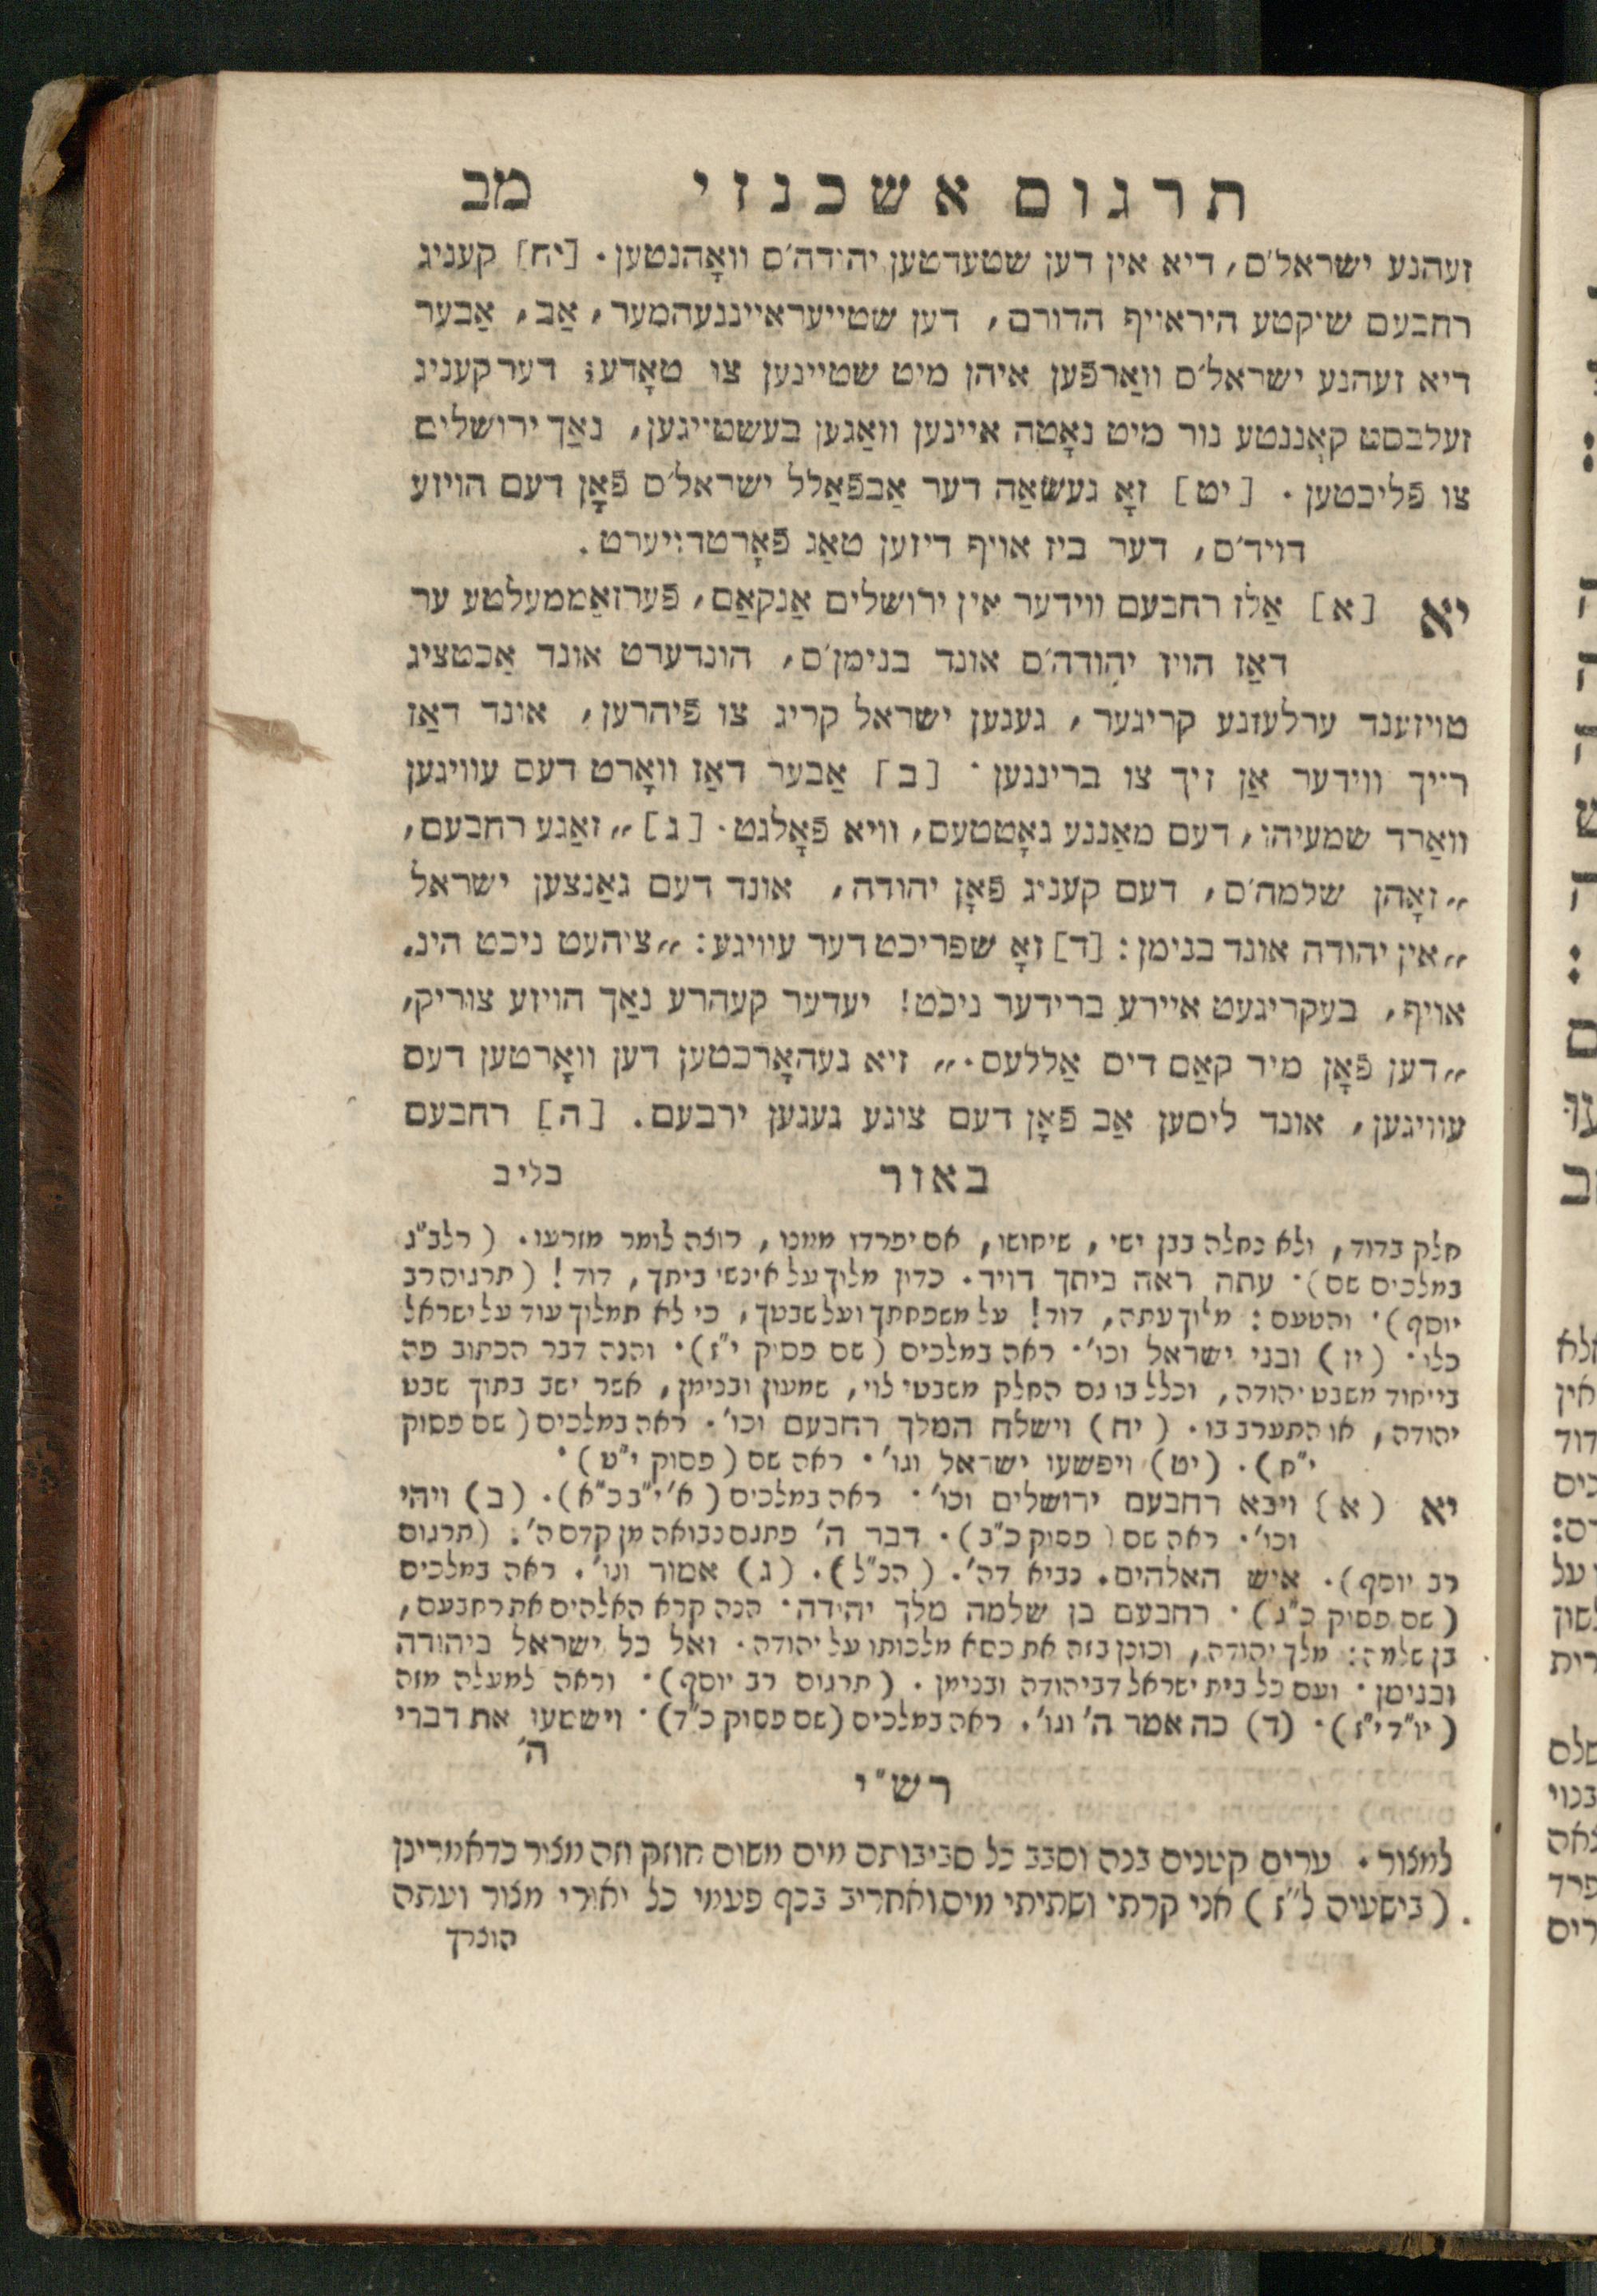 תרגום אשכנזי מב
זעהנע ישראל'ס, דיא אין דען שטעדטען יהודה'ס וואָהנטען. [יח] קעניג
רחבעם שיקטע היראויף הדורם, דען שטייעראייננעהמער, אַב, אַבער
דיא זעהנע ישראל'ס וואַרפֿען איהן מיט שטיינען צו טאָדע; דער קעניג
זעלבסט קאָננטע נור מיט נאָטה איינען וואַגען בעשטייגען, נאַך ירושלים
צו פֿליכטען. [יט] זאָ געשאַה דער אַבפֿאַלל ישראל'ס פֿאָן דעם הויזע
דויד'ס, דער ביז אויף דיזען טאַג פֿאָרטדויערט.
יא [א] אַלז רחבעם ווידער אין ירושלים אַנקאַם, פֿערזאַממעלטע ער
דאַז הויז יהודה'ס אונד בנימן'ס, הונדערט אונד אַכטציג
טויזענד ערלעזנע קריגער, געגען ישראל קריג צו פֿיהרען, אונד דאַז
רייך ווידער אַן זיך צו ברינגען. [ב] אַבער דאַז וואָרט דעס עוויגען
וואַרד שמעיהו, דעם מאַננע גאָטטעס, וויא פֿאָלגט. [ג] „זאַגע רחבעם,
„זאָהן שלמה'ס, דעם קעניג פֿאָן יהודה, אונד דעם גאַנצען ישראל
„אין יהודה אונד בנימן: [ד] זאָ שפריכט דער עוויגע: „ציהעט ניכט הינ.
אויף, בעקריגעט איירע ברידער ניכט! יעדער קעהרע נאַך הויזע צוריק,
„דען פֿאָן מיר קאַם דיס אַללעס.„ זיא געהאָרכטען דען וואָרטען דעס
עוויגען, אונד ליסען אַב פֿאָן דעם צוגע געגען ירבעם. [ה] רחבעם
באור בליב
חלק בדוד, ולא נחלה בבן ישי, שיחושו, אם יפרדו ממנו, רוצה לומר מזרעו. (רלב"ג
במלכים שם). עתה ראה ביתך דויד. כדון מלוך על אינשי ביתך, דוד! (תרגום רב
יוסף). והטעם: מלוך עתה, דוד! על משפחתך ועל שבטך, כי לא תמלוך עוד על ישראל
כלו. (יז) ובני ישראל וכו'. ראה במלכים (שם פסוק י"ז). והנה דבר הכתוב פה
בייחוד משבט יהודה, וכלל בו גם החלק משבטי לוי, שמעון ובנימן, אשר ישב בתוך שבט
יהודה, או התערב בו. (יח) וישלח המלך רחבעם וכו'. ראה במלכים (שם פסוק
י"ח). (יט) ויפשעו ישראל וגו'. ראה שם (פסוק י"ט).
יא (א) ויבא רחבעם ירושלים וכו'. ראה במלכים (א' י"ב כ"א). (ב) ויהי
וכו'. ראה שם (פסוק כ"ב). דבר ה' פתגם נבואה מן קדם ה'. (תרגום
רב יוסף). איש האלהים. נביא דה'. (הנ"ל). (ג) אמור וגו'. ראה במלכים
(שם פסוק כ"ג). רחבעם בן שלמה מלך יהודה. הנה קרא האלהים את רחבעם,
בן שלמה: מלך יהודה, וכונן בזה את כסא מלכותו על יהודה. ואל כל ישראל ביהודה
ובנימן. ועם כל בית ישראל דביהודה ובנימן. (תרגום רב יוסף). וראה למעלה מזה
(יו"ד י"ז). (ד) כה אמר ה' וגו'. ראה במלכים (שם פסוק כ"ד). וישמעו את דברי
ה'
רש"י
למצור. ערים קטנים בנה וסבב כל סביבותם מים משום חוזק וזה מצור כדאמרינן
(בישעיה ל"ז) אני קרתי ושתיתי מים ואחריב בכף פעמי כל יאורי מצור ועתה
הוצרך